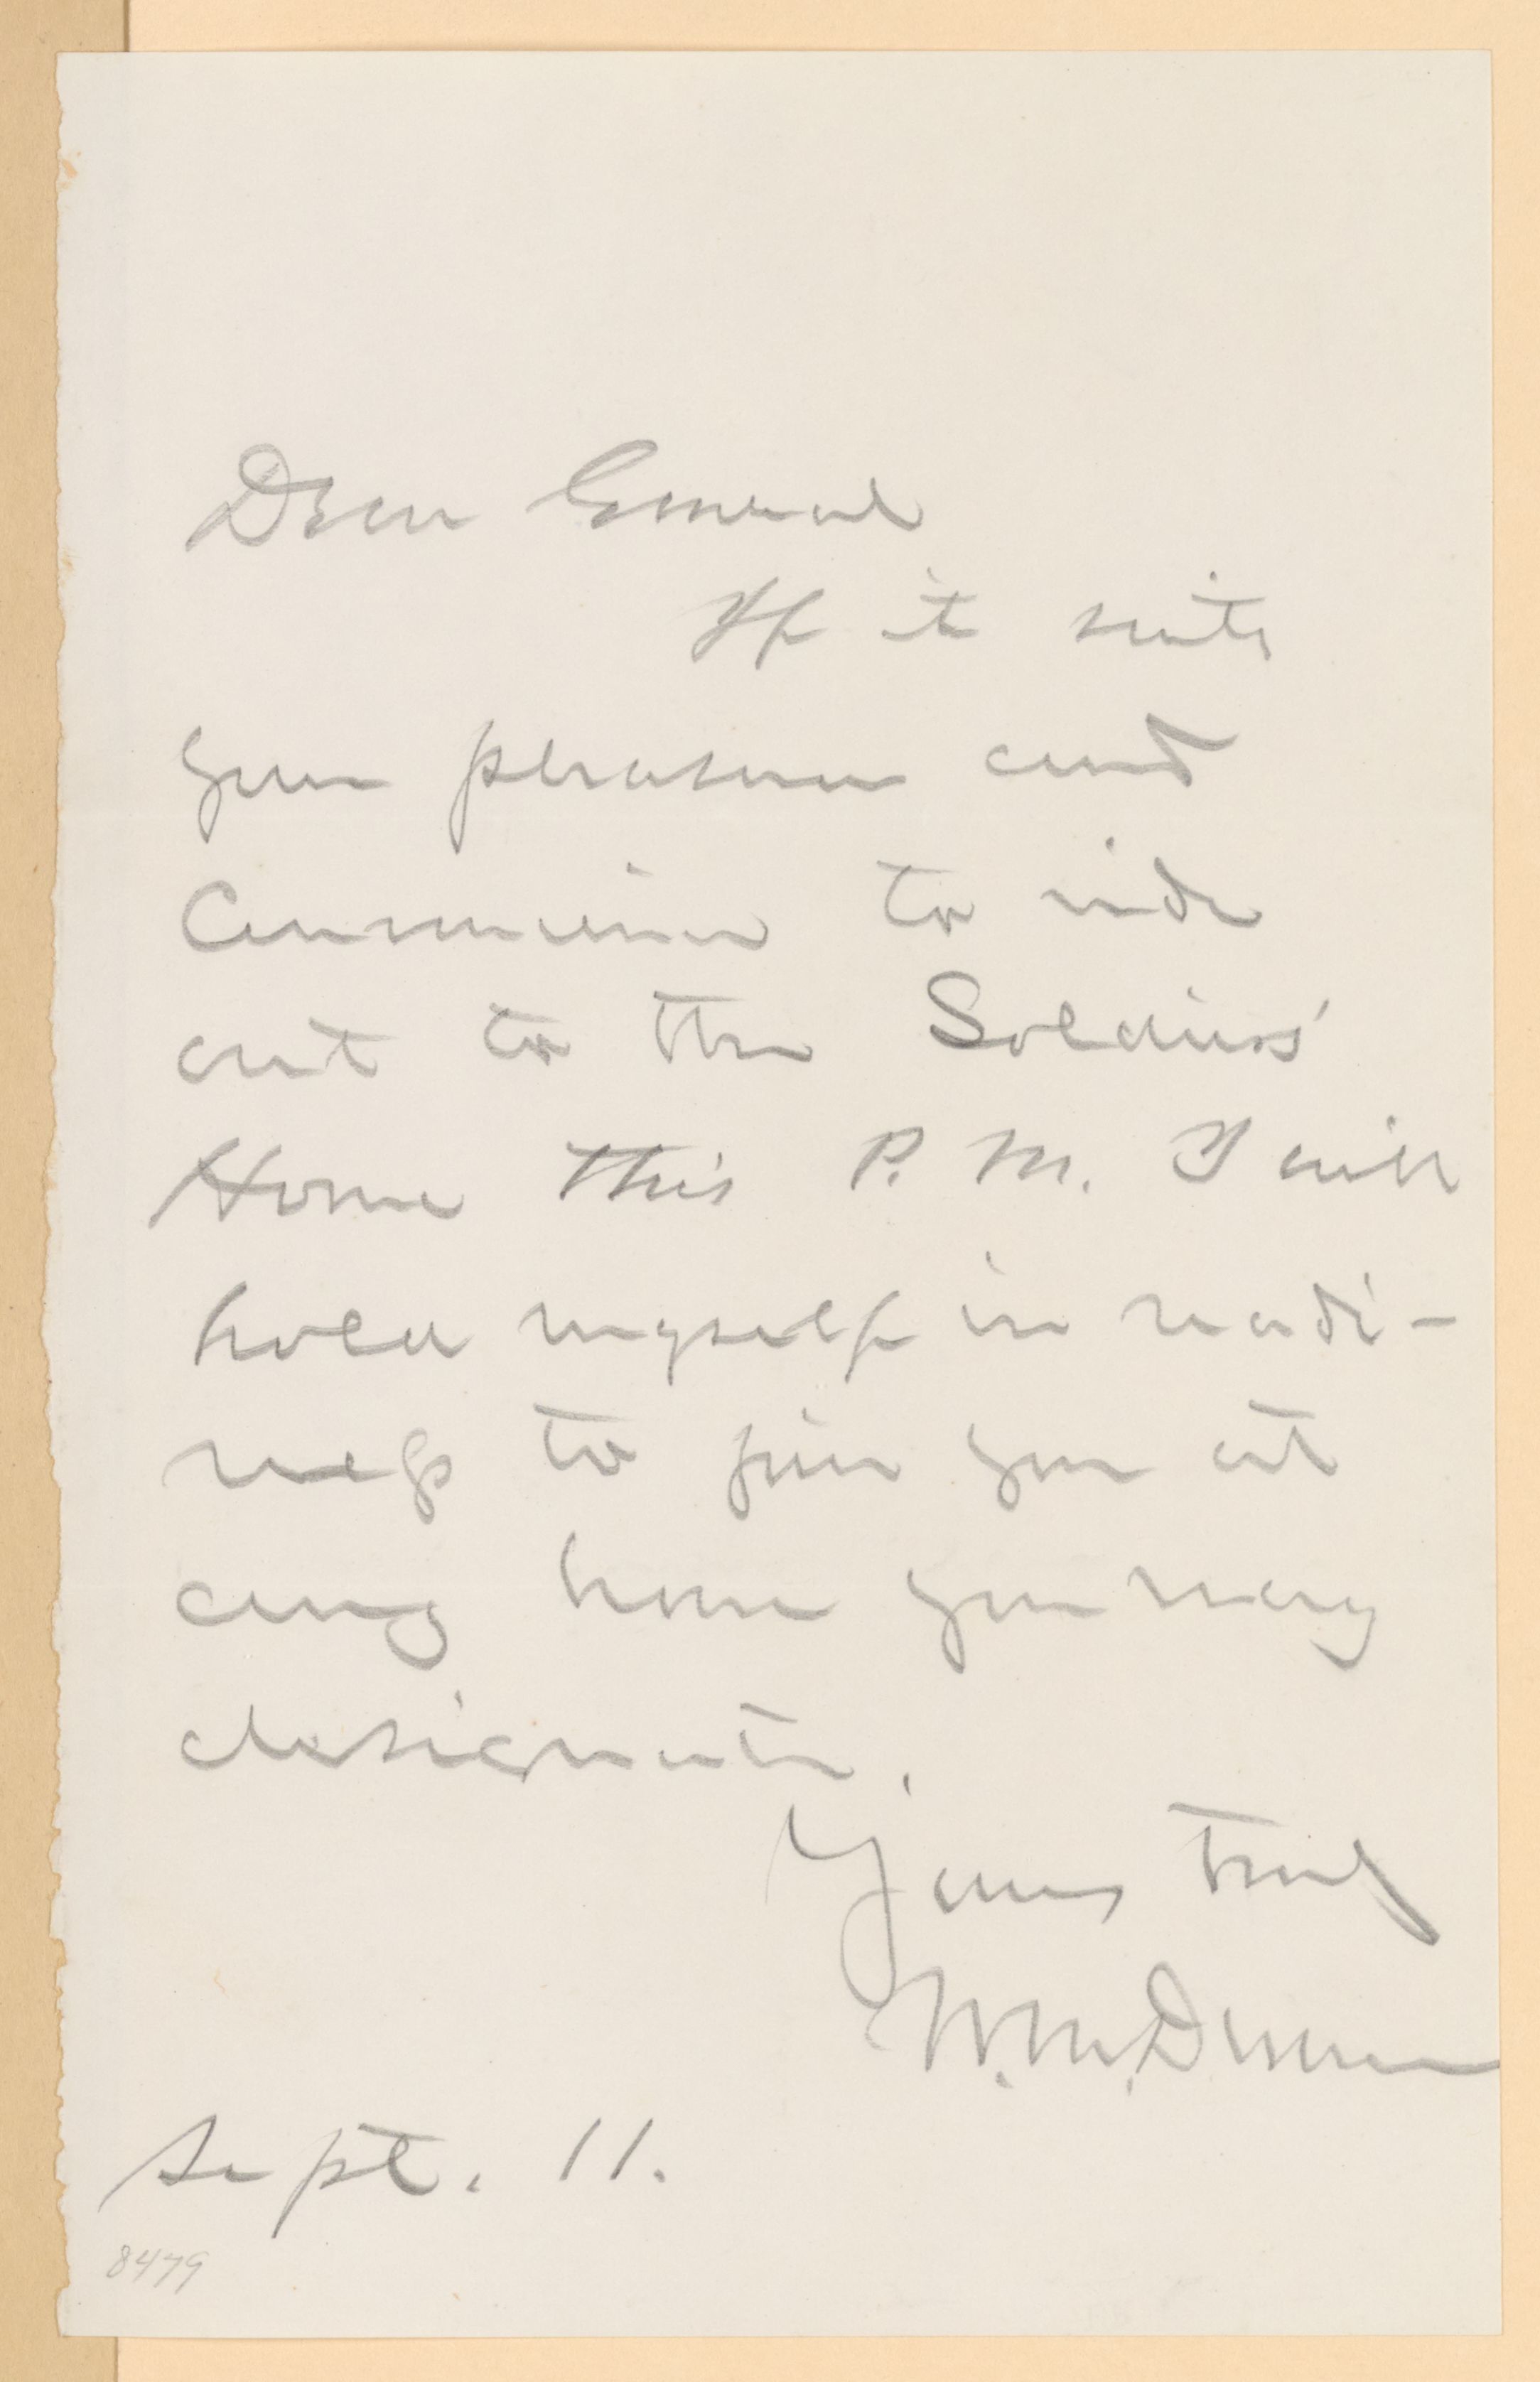 Dear General
If it suits
your pleasure and
Convenience to ride
out to the Soldiers'
Home this P. M. I will
hold myself in readi-
ness to join you at
any hour you may
designate.
Yours truly
W. M. Dunn
Sept. 11.
8479